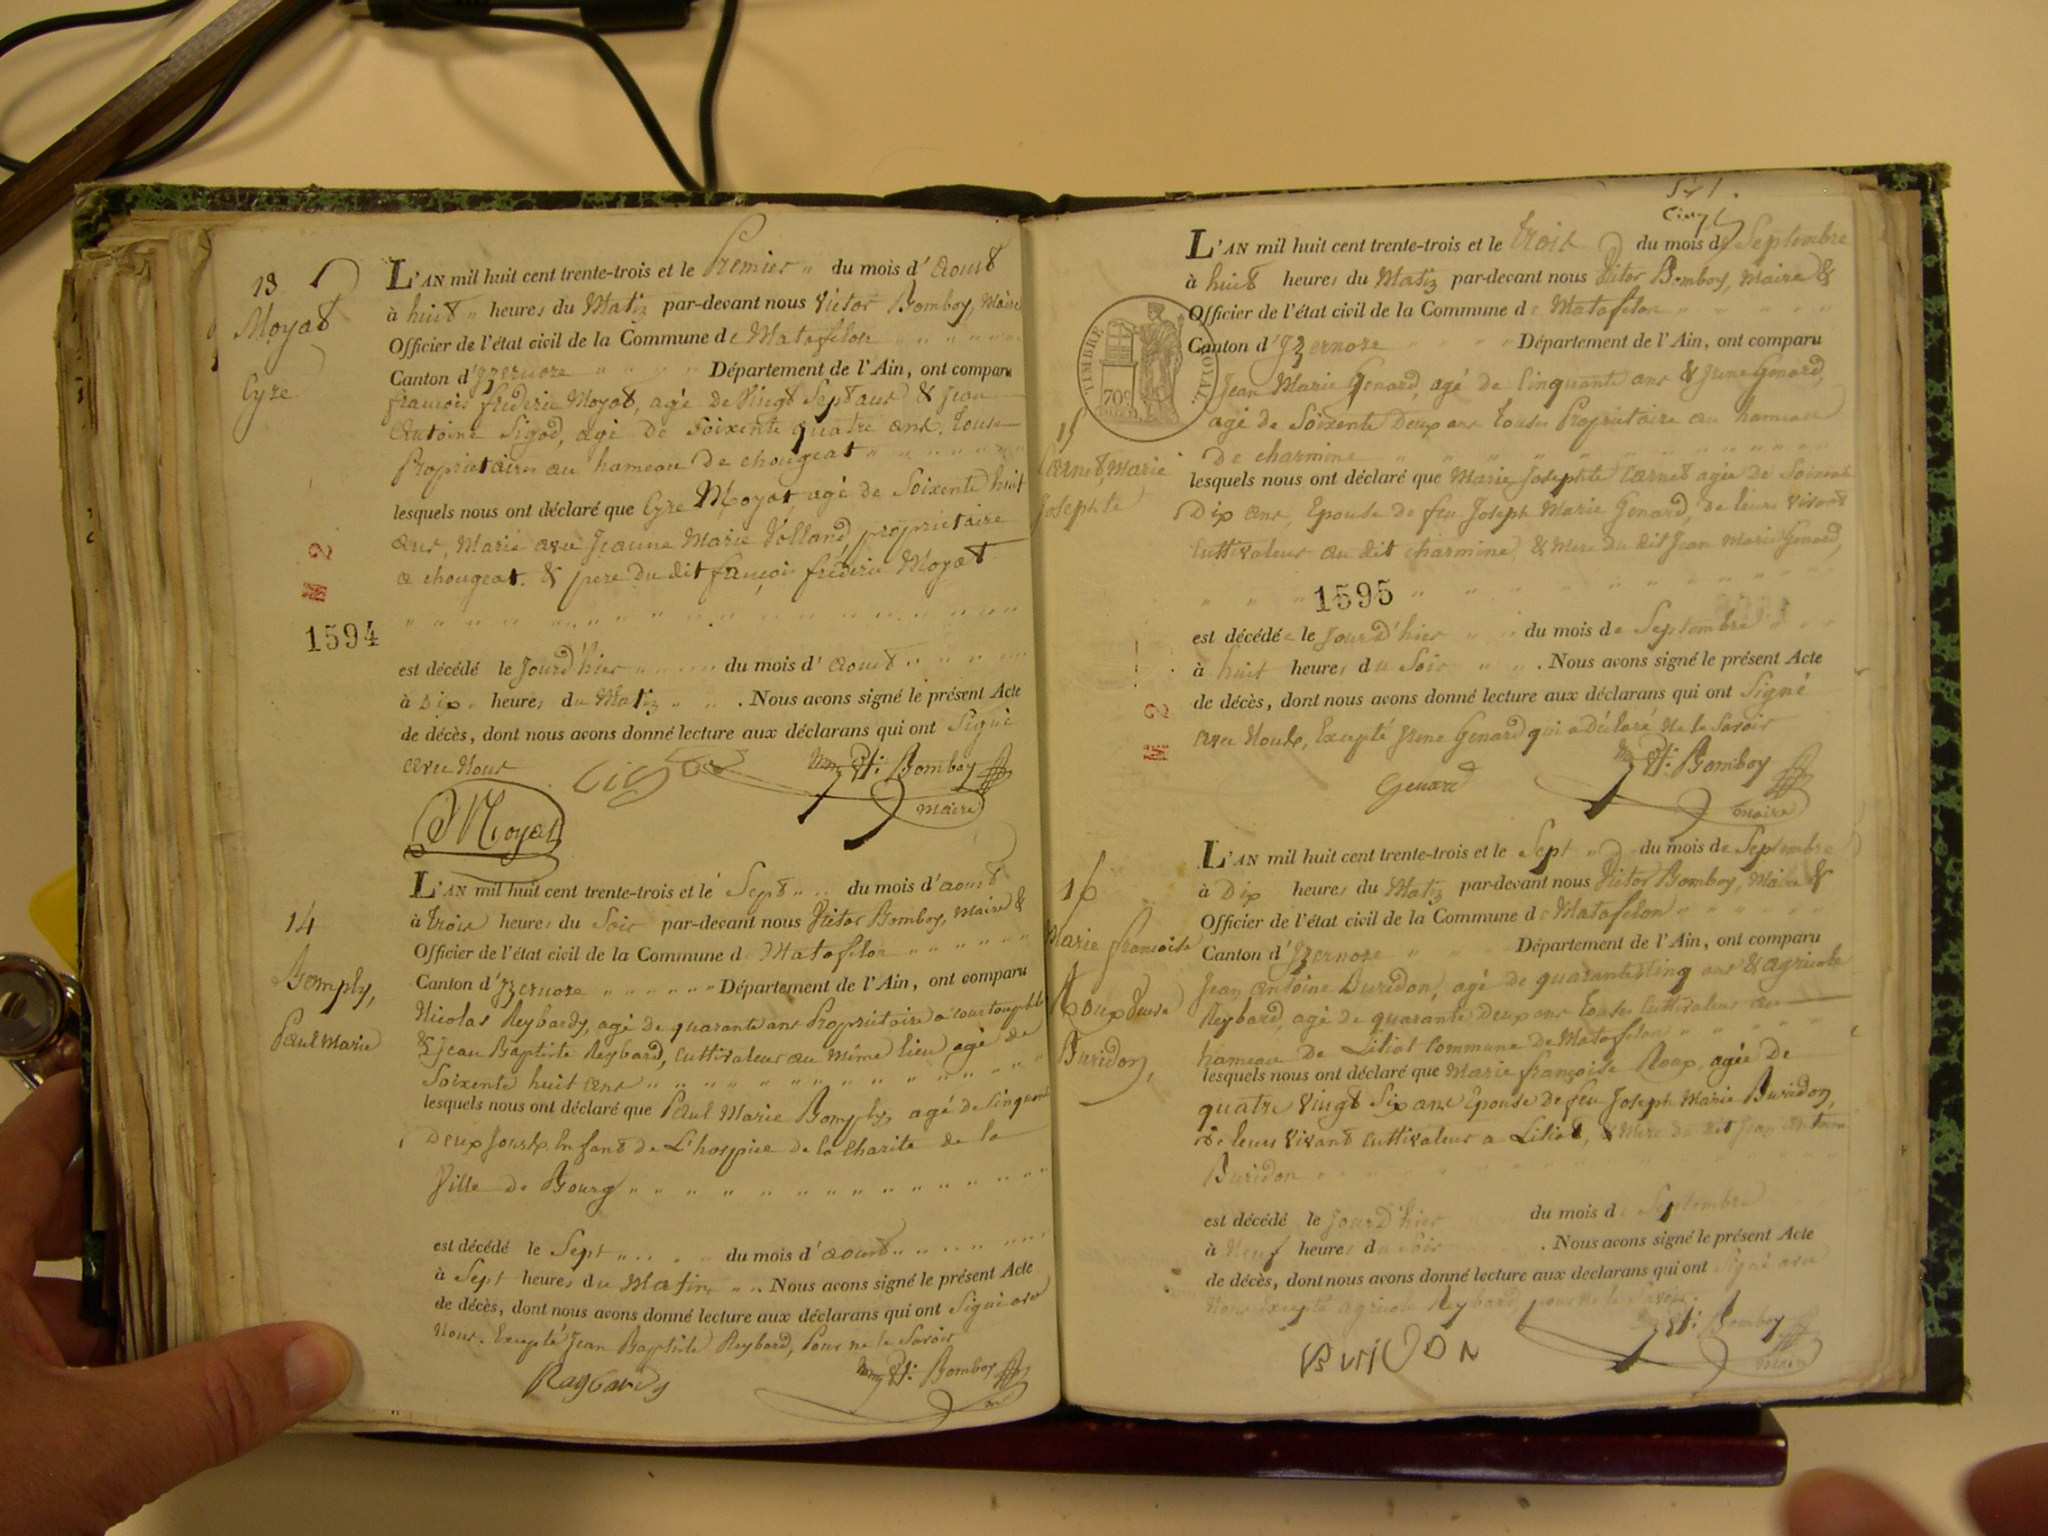 13
Moyat
Cyre
L'AN mil huit cent trente-trois et le Premier du mois d'aoust
à huit heures du Matin par-devant nous Victor Bomboy, Maire
Officier de l'état civil de la Commune de Matafelon
Canton d'Izernore Département de l'Ain, ont comparu
françois frédéric Moyat, agé de Vingt Sept ans & Jean
Antoine Sigod, agé de Soixente quatre ans. Tous
Proprietaires au hameau de chougeat
lesquels nous ont déclaré que Cyre Moyat, agé de Soixente huit
ans, Marié avec Jeanne Marie Volland, proprietaire
a chougeat. & pere du dit françois fréderic Moyat
1594
est décédé le Jourd'hier du mois d'aoust
à Dix heures du Matin. Nous avons signé le présent Acte
de décès, dont nous avons donné lecture aux déclarans qui ont Signé
avec Nous
Sigod Bomboy
maire
Moyat
14
Bomply,
Paul Marie
L'AN mil huit cent trente-trois et le Sept du mois d'aoust
à trois heures du Soir par-devant nous Victor Bomboy, Maire &
Officier de l'état civil de la Commune de Matafelon
Canton d'Izernore Département de l'Ain, ont comparu
Nicolas Reybardy, agé de quarante ans Proprietaire a courtouphle
& Jean Baptiste Reybard, Cultivateur au même lieu agé de
Soixente huit ans
lesquels nous ont déclaré que Paul Marie Bomply, agé de Cinquante
Deux Jours, Enfant de L'hospice de la Charité de la
Ville de Bourg
est décédé le Sept du mois d'aoust
à Sept heures du Matin. Nous avons signé le présent Acte
de décès, dont nous avons donné lecture aux déclarans qui ont Signé avec
Nous. Excepté Jean Baptiste Reybard, Pour ne le Savoir
Raybardy Bomboy
m
571.
TIMBRE ROYAL
70c
15
Carnet, Marie
Josephte
L'AN mil huit cent trente-trois et le trois du mois de Septembre
à huit heures du Matin par-devant nous Victor Bomboy, Maire &
Officier de l'état civil de la Commune de Matafelon
Canton d'Izernore Département de l'Ain, ont comparu
Jean Marie Genard, agé de Cinquante ans & Genard,
agé de Soixente Deux ans tous Proprietaire au hameau
de charmine
lesquels nous ont déclaré que Marie Josephte Carnet agée de Soixente
Dix ans, Epouse de feu Joseph Marie Genard, de leurs Vivant
Cultivateur au dit charmine, & Mere du dit Jean Marie Genard,
1595
est décédée le Jourd'hier du mois de Septembre
à huit heures du Soir. Nous avons signé le présent Acte
de décès, dont nous avons donné lecture aux déclarans qui ont Signé
avec Nous, Excepté Genard qui a Déclaré Ne le Savoir
Genard Bomboy
maire
16
Marie françoise
Roux Veuve
Buridon,
L'AN mil huit cent trente-trois et le Sept du mois de Septembre
à Dix heures du Matin par-devant nous Victor Bomboy, Maire &
Officier de l'état civil de la Commune de Matafelon
Canton d'Izernore Département de l'Ain, ont comparu
Jean Antoine Buridon, agé de quarante Cinq ans & agricole
Reybard, agé de quarante Deux ans tous Cultivateur au
hameau de Liliat Commune de Matafelon
lesquels nous ont déclaré que Marie françoise Roux, agée De
quatre Vingt Six ans Epouse de feu Joseph Marie Buridon,
de leurs Vivant Cultivateur a Liliat, & Mere du dit Jean Antoine
Buridon
est décédé le Jourd'hier du mois de Septembre
à Neuf heures du Soir. Nous avons signé le présent Acte
de décès, dont nous avons donné lecture aux déclarans qui ont Signé avec
Nous Excepté agricole Reybard, pour ne le Savoir.
BURIDON Bomboy
maire